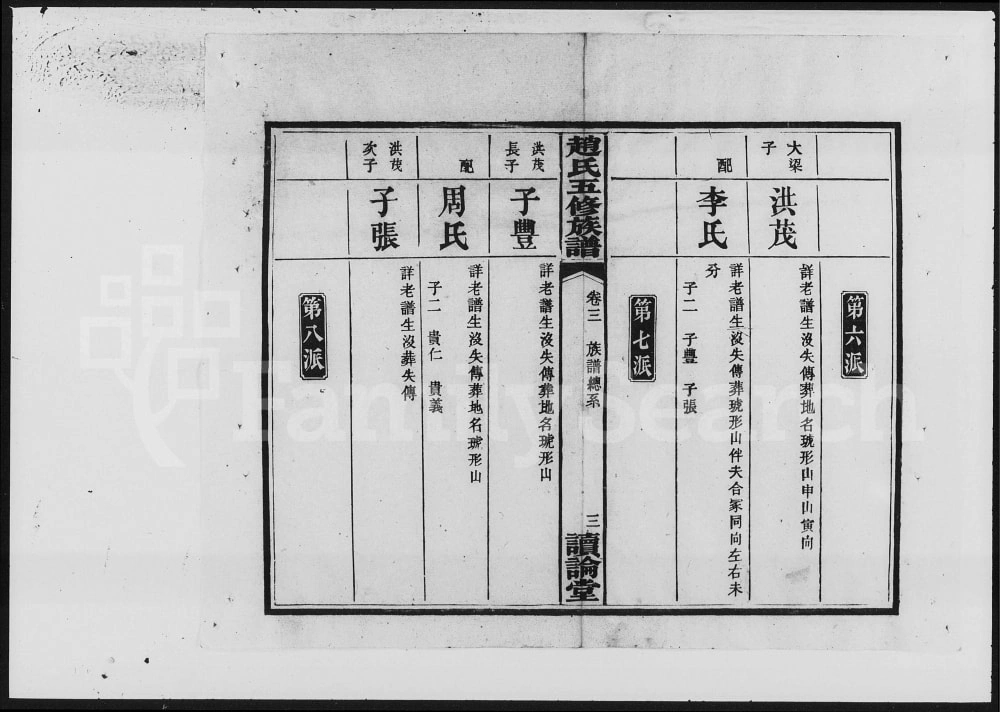 第六派
大梁
子
洪茂
詳老譜生沒失傳葬地名琥形山申山寅向
配
李氏
詳老譜生沒失傳葬琥形山伴夫合冢同向左右未
分
子二 子豐 子張
第七派
趙氏五修族譜
卷三 族譜總系
三
讀論堂
洪茂
長子
子豐
詳老譜生沒失傳葬地名琥形山
配
周氏
詳老譜生沒失傳葬地名琥形山
子二 貴仁 貴義
洪茂
次子
子張
詳老譜生沒葬失傳
第八派
FamilySearch